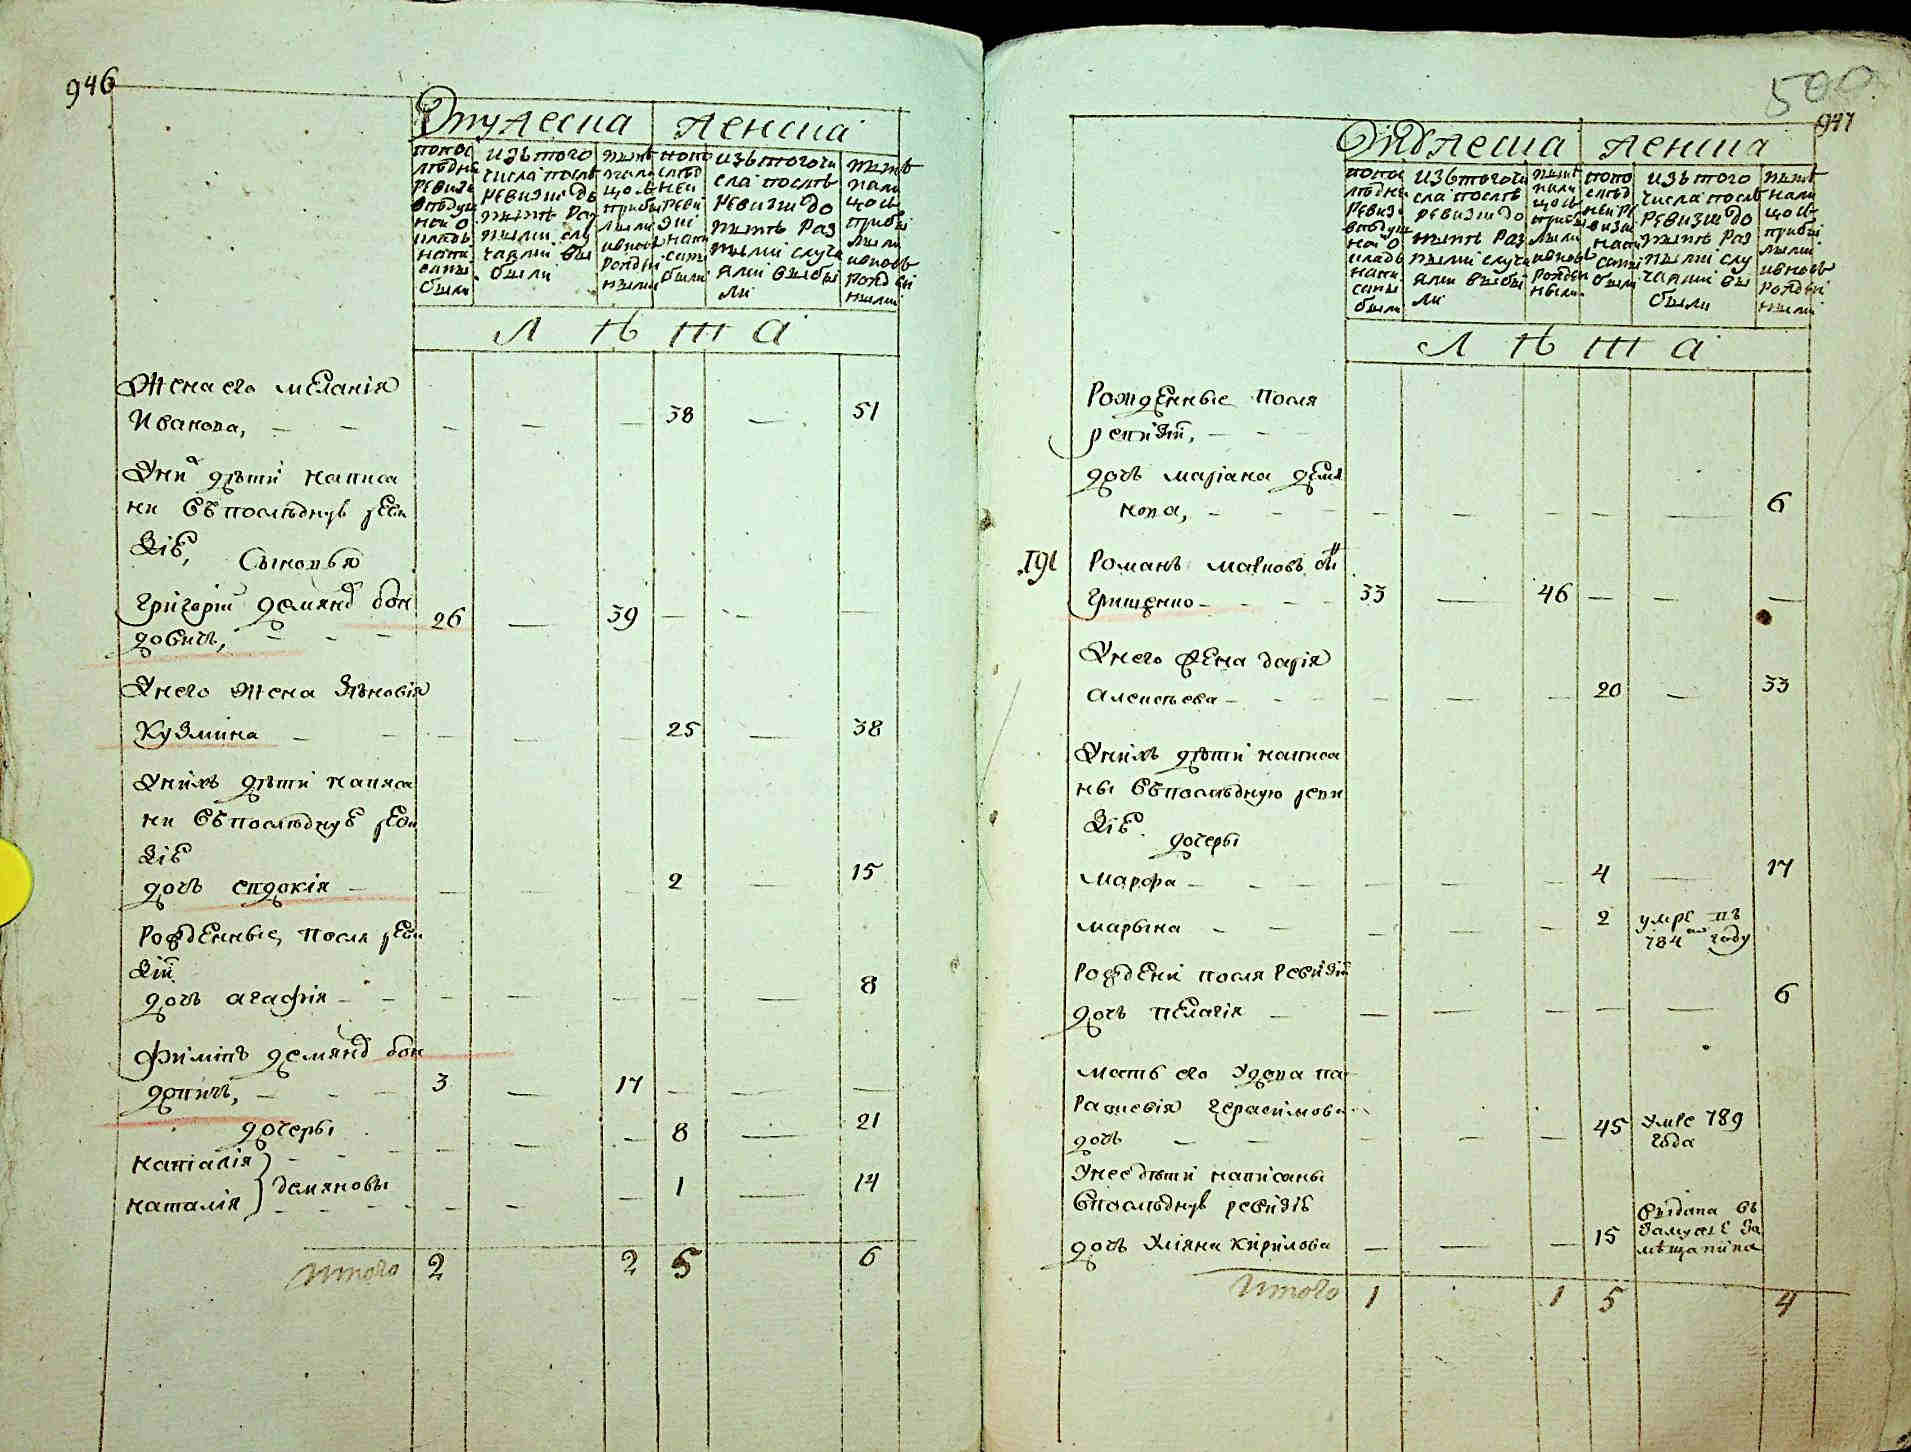 946
Мужеска Женска
попос
лѣдне
ревизи
вподуш
ной о
кладъ
напи
саны
были
изъ того
числа послѣ
ревизіи до
нынѣ раз
ными слу
чаями вы
были
нынѣ
нали
цо съ
прибы
лыми
ивновь
рожден
ными
попо
слѣд
ней
реви
зіи
напи
саны
были
изъ того чи
сла послѣ
ревизіи до
нынѣ раз
ными случа
ями выбы
ли
нынѣ
нали
цо съ
прибы
лыми
ивновь
рожде
ными
Л Ѣ Т А
Жена его меланія
Иванова, — — — — — 38 — 51
Уни х дѣти написа
ни въ послѣднув реви
зів, Сыновья
Григорій демянов бон
довичъ, — — — 26 — 39 — — —
Унего жена Зѣновія
Кузмина — — — — — 25 — 38
Унихъ дѣти написа
ни въ послѣднув реви
зів
дочъ евдокія — — — — 2 — 15
Рожденные, после реви
зіи
дочъ агафія — — — — — — — 8
Филипъ демянов бон
довичъ, — — — 3 — 17 — — —
дочеры — — — 8 — 21
наталія
наталія } демяновы — — — 1 — 14
Итого 2 2 5 6
500
947
Мужеска Женска
попос
лѣдне
ревизи
вподуш
ной о
кладъ
напи
саны
были
изъ того чи
сла послѣ
ревизіи до
нынѣ раз
ными случа
ями выбы
ли
нынѣ
нали
цо съ
прибы
лыми
ивновь
рожде
ными
попо
слѣд
ней ре
визіи
напи
саны
были
изъ того
числа послѣ
ревизіи до
нынѣ раз
ными слу
чаями вы
были
нынѣ
нали
цо съ
прибы
лыми
ивновь
рождені
ными
Л Ѣ Т А
Рожденные После
ревизіи, — — —
дочъ маріана демя
нова, — — — — — — — — 6
191 Романъ марковъ снъ
Грищенко — — — 33 — 46 — — —
Унего Жена дарія
алексѣева — — — — — — 20 — 33
Унихъ дѣти написа
ны въ послѣдную реви
зів дочеры
марфа — — — — — — 4 — 17
марына — — — — — 2 умре въ
784 м году
Рождени после Ревизіи
дочъ пелагія — — — — — — — 6
мать его Удова па
раскевія герасимова
дочъ — — — — 45 Умре 789
года
Унее дѣти написаны
впослѣднув ревизів
дочъ Уліяна кирилова — — — 15 выдана въ
замужже за
мѣщанина
Итого 1 1 5 4